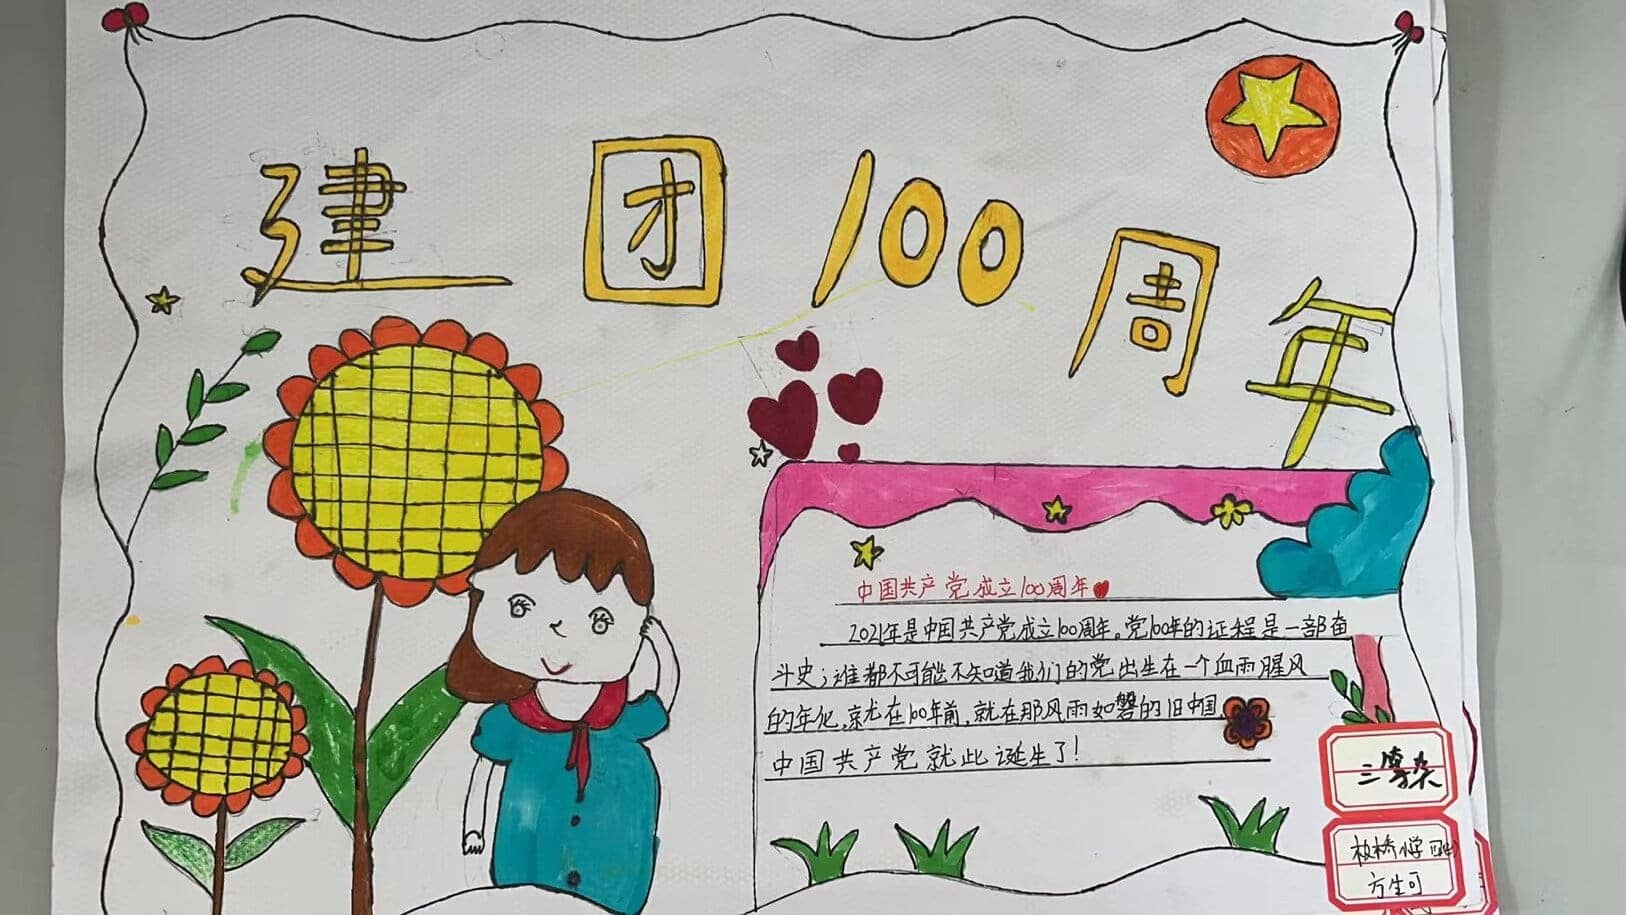 建团100周年
中国共产党成立100周年
2021年是中国共产党成立100周年。党100年的证程是一部奋
斗史；谁都不可能不知道我们的党出生在一个血雨腥风
的年代，就在100年前，就在那风雨如磐的旧中国，
中国共产党就此诞生了！
三等奖
板桥小学
方生可